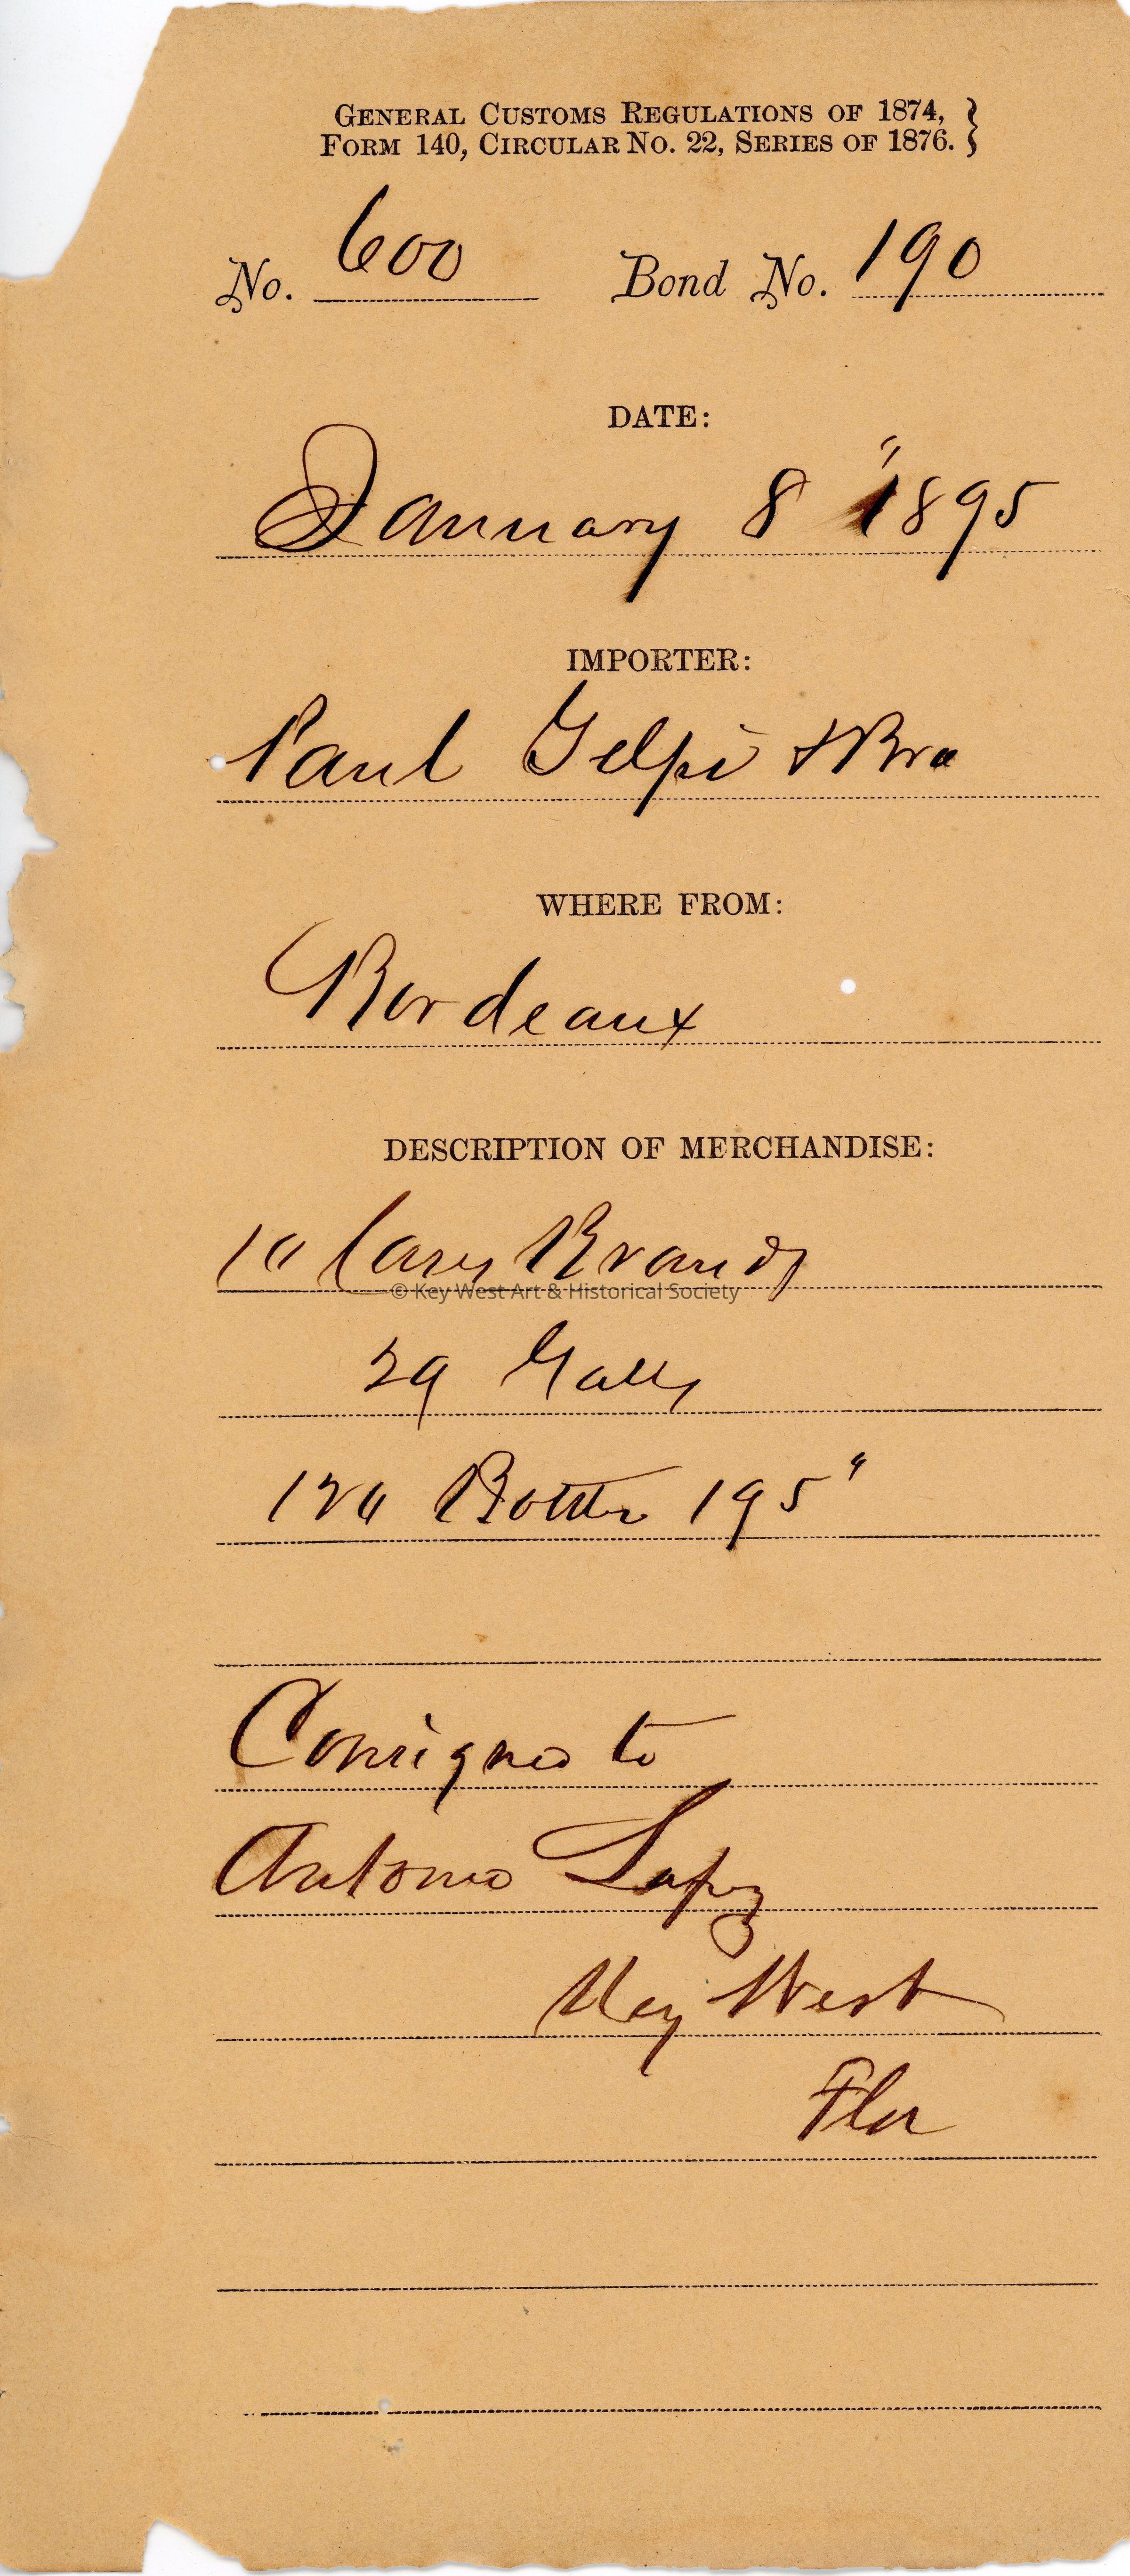 GENERAL CUSTOMS REGULATIONS OF 1874,
FORM 140, CIRCULAR NO. 22, SERIES OF 1876.
No. 600 Bond No. 190
DATE:
January 8" 1895
IMPORTER:
Paul Gelpi & Bro
WHERE FROM:
Bordeaux
DESCRIPTION OF MERCHANDISE:
10 Cases Brandy
© Key West Art & Historical Society
29 Galls
120 Bottles 195"
Consigned to
Antonio Lopez
Key West
Fla